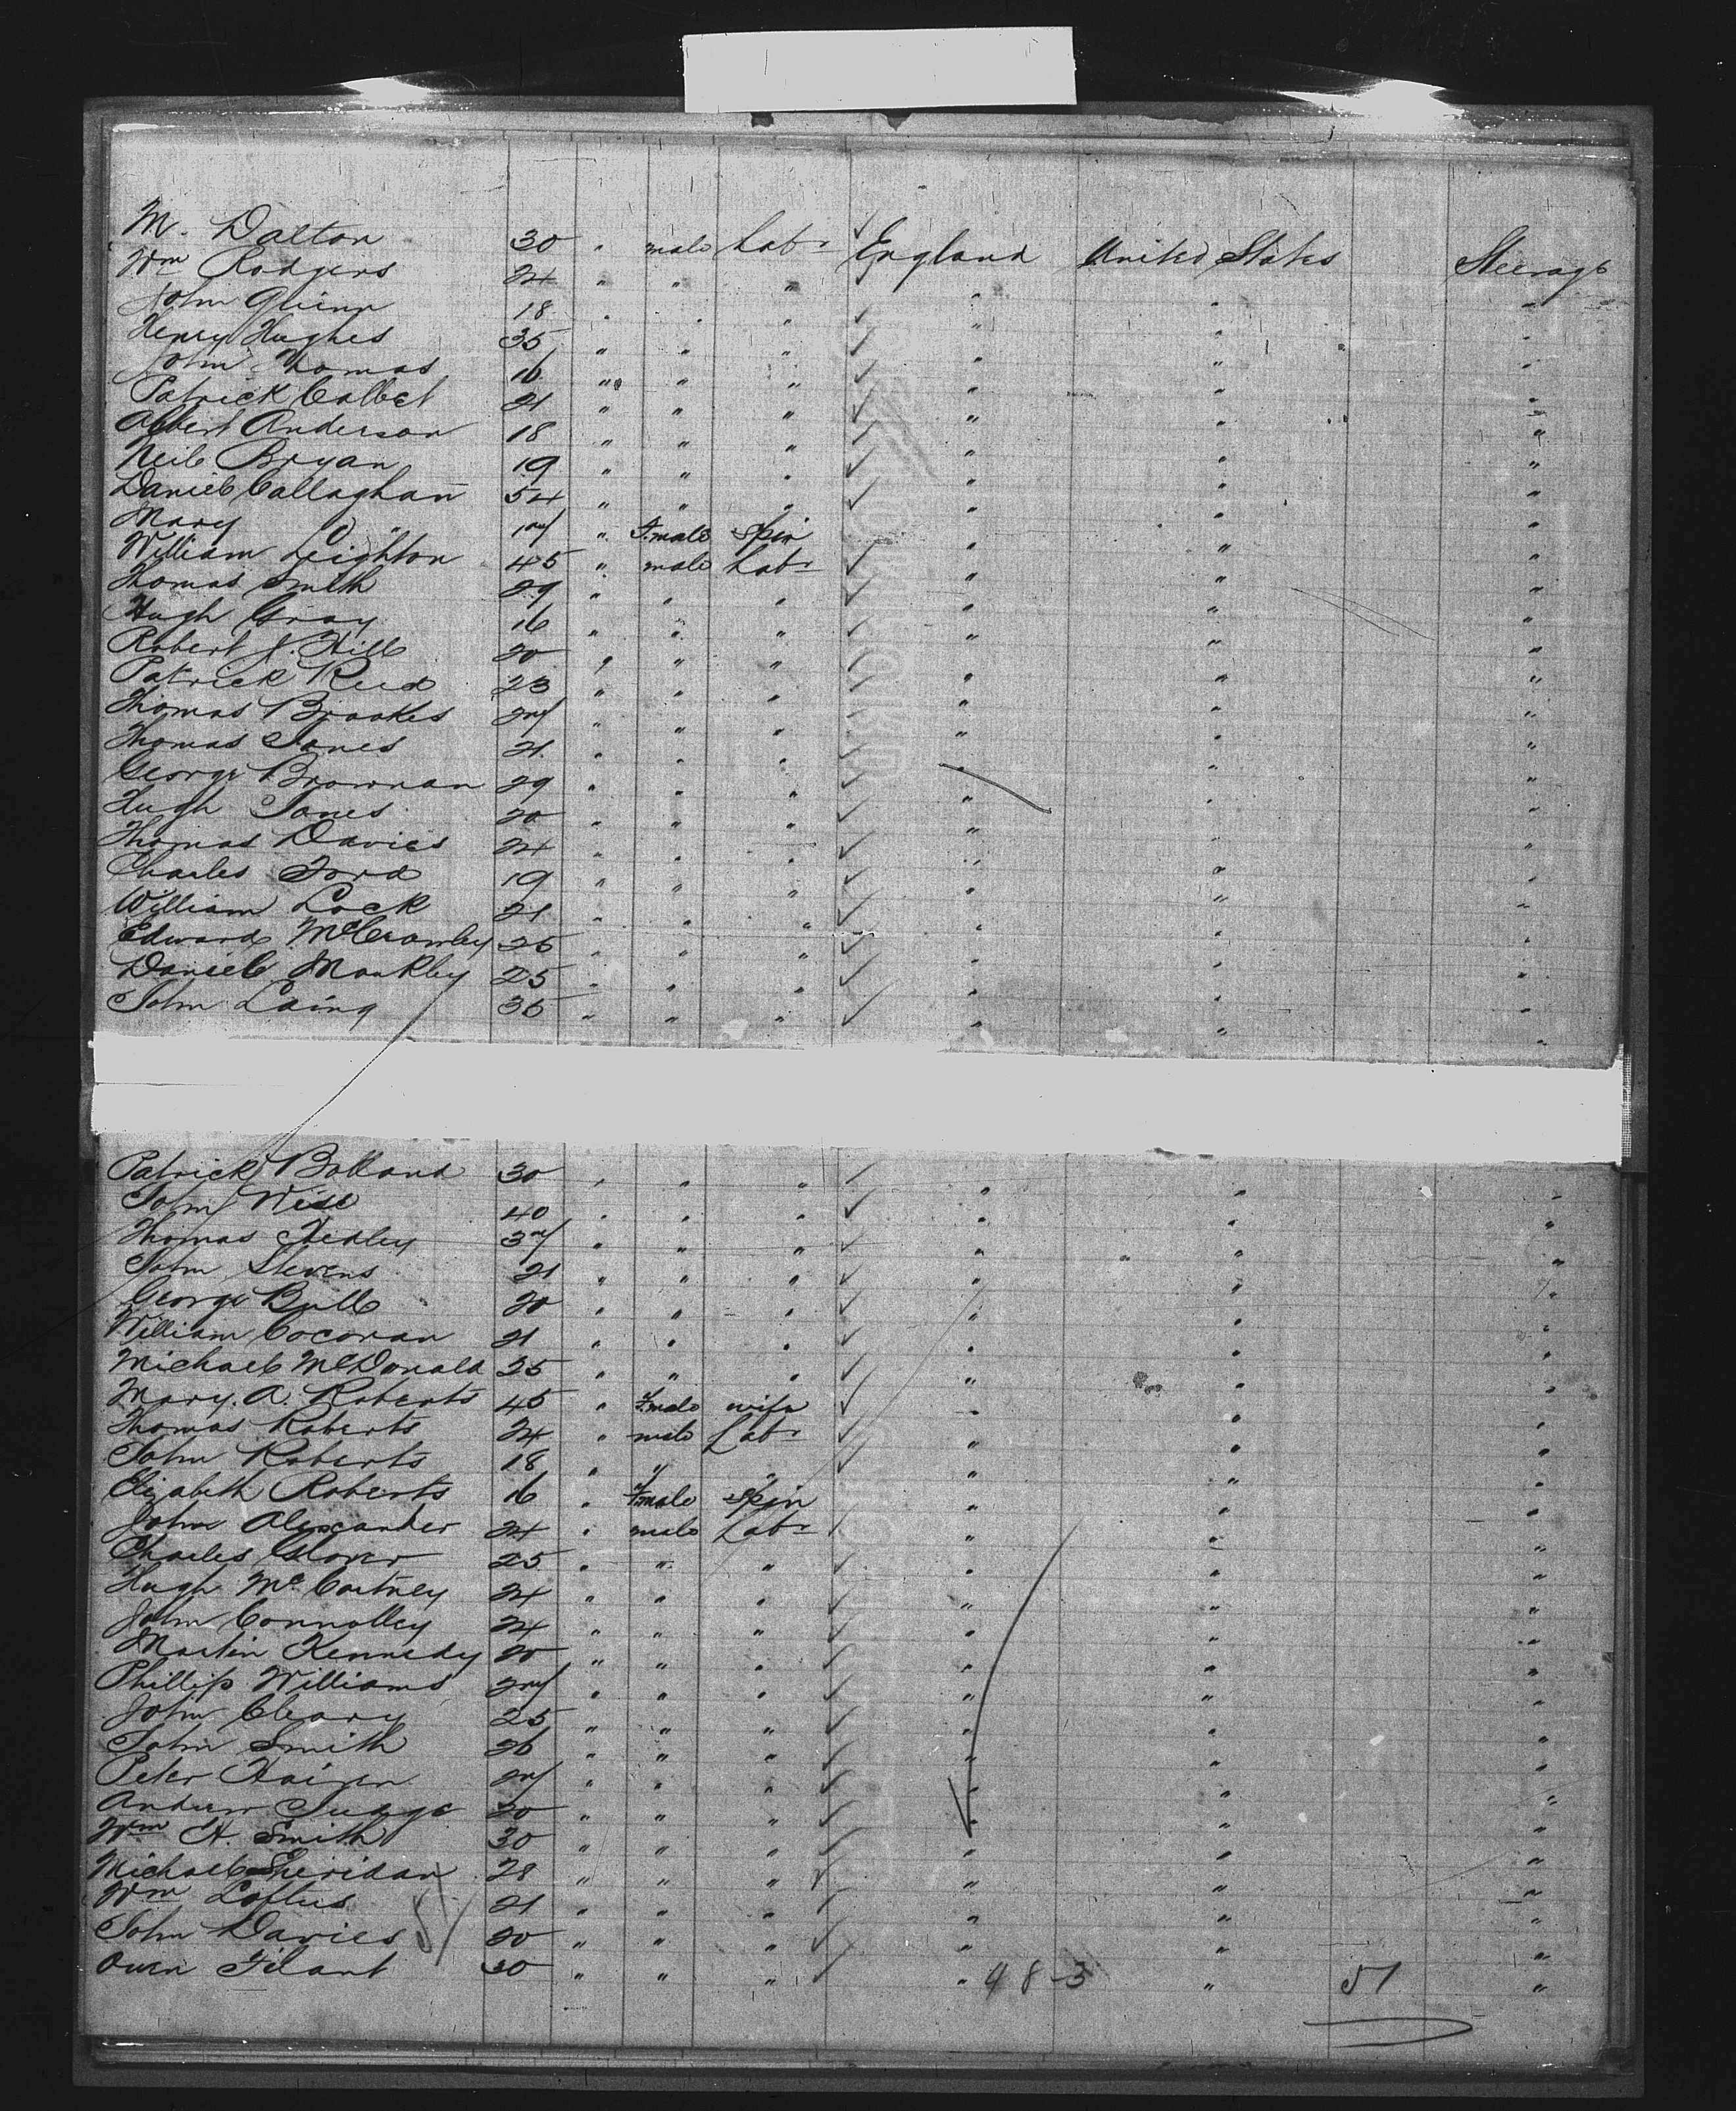 M. Dalton 30 " male Labr England United States Steerage
Wm Rodgers 24 " " " " " "
John Quinn 18 " " " " " "
Henry Hughes 35 " " " " " "
John Thomas 16 " " " " " "
Patrick 21 " " " " " "
Albert Anderson 18 " " " " " "
Neil Bryan 19 " " " " " "
Daniel Callaghan 54 " " " " " "
Mary 17 " Female Spin " " "
William Leighton 45 " male Labr " " "
Thomas Smith 29 " " " " " "
Hugh Gray 16 " " " " " "
Robert J. Hill 20 " " " " " "
Patrick Reid 23 " " " " " "
Thomas Brookes 27 " " " " " "
Thomas Jones 21 " " " " " "
George Brownan 29 " " " " " "
Hugh Jones 20 " " " " " "
Thomas Davies 24 " " " " " "
Charles Ford 19 " " " " " "
William Lock 21 " " " " " "
Edward McCrowley 25 " " " " " "
Daniel Mankley 25 " " " " " "
John Laing 35 " " " " " "
Patrick Bolland 30 " " " " " "
John Wise 40 " " " " " "
Thomas Hedley 37 " " " " " "
John Stevens 21 " " " " " "
George Bull 20 " " " " " "
William Cocoran 21 " " " " " "
Michael McDonald 25 " " " " " "
Mary. A. Roberts 45 " Female wife " " "
Thomas Roberts 24 " male Labr " " "
John Roberts 18 " " " " " "
Elizabeth Roberts 16 " Female Spin " " "
John Alexander 24 " male Labr " " "
Charles Glover 25 " " " " " "
Hugh McCartney 24 " " " " " "
John Connolley 24 " " " " " "
Martin Kennedy 20 " " " " " "
Phillip Williams 27 " " " " " "
John Cleary 25 " " " " " "
John Smith 26 " " " " " "
Peter 27 " " " " " "
Andrew Judge 20 " " " " " "
Wm H. Smith 30 " " " " " "
Michael Sheridan 28 " " " " " "
Wm Loftus 21 " " " " " "
John Davies 20 " " " " " "
Owen 30 " " " " 48-3 " 51 "